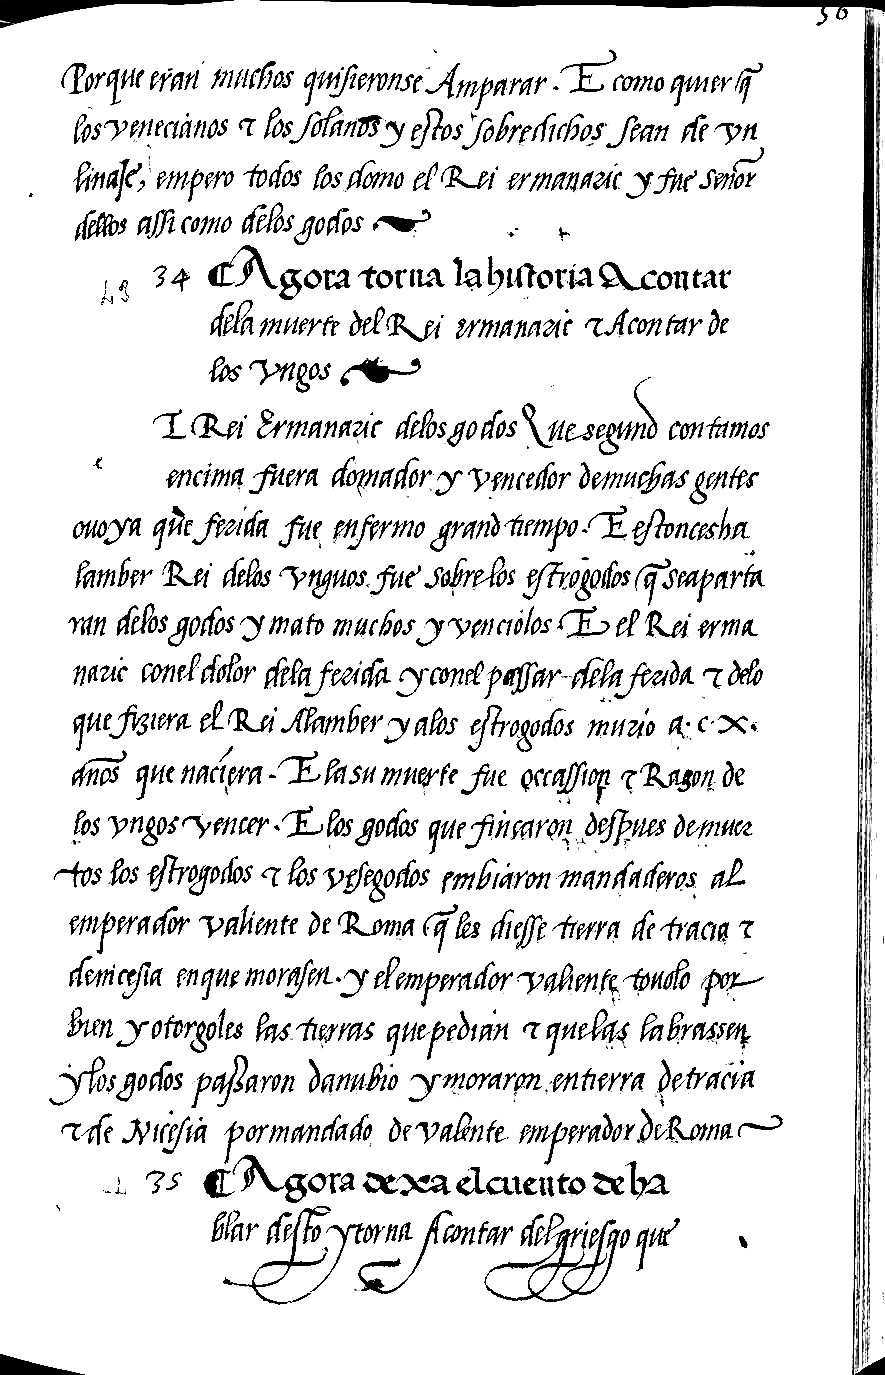 56
Porque eran muchos quisieronse Amparar. E como quier q̃
los venecianos τ los solanos y estos sobredichos sean de vn
linaje, empero todos los domo el Rei ermanaric y fue señor
dellos assi como delos godos
34 ¶ Agora torna la historia A contar
dela muerte del Rei ermanaric τ A contar de
los vngos
L Rei Ermanaric delos godos Que segund contamos
encima fuera domador y vencedor de muchas gentes
ouo ya que ferida fue enfermo grand tiempo. E estonces ba
lamber Rei delos vnguos fue sobre los estrogodos q̃ se aparta
ran delos godos y mato muchos y venciolos. E el Rei erma
naric conel dolor dela ferida y conel passar dela ferida τ delo
que fiziera el Rei Alamber y alos estrogodos murio a. c. x.
años que naciera. E la su muerte fue occassion τ Razon de
los vngos vencer. E los godos que fincaron despues de muer
tos los estrogodos τ los vesegodos embiaron mandaderos al
emperador valiente de Roma q̃ les diesse tierra de tracia τ
de nicesia en que morasen. y el emperador valiente touolo por
bien y otorgoles las tierras que pedian τ que las labrassen
y los godos passaron danubio y moraron en tierra de tracia
τ de Nicesia por mandado de valente emperador de Roma
35 ¶ Agora dexa el cuento de ha
blar desto y torna A contar del griesgo que